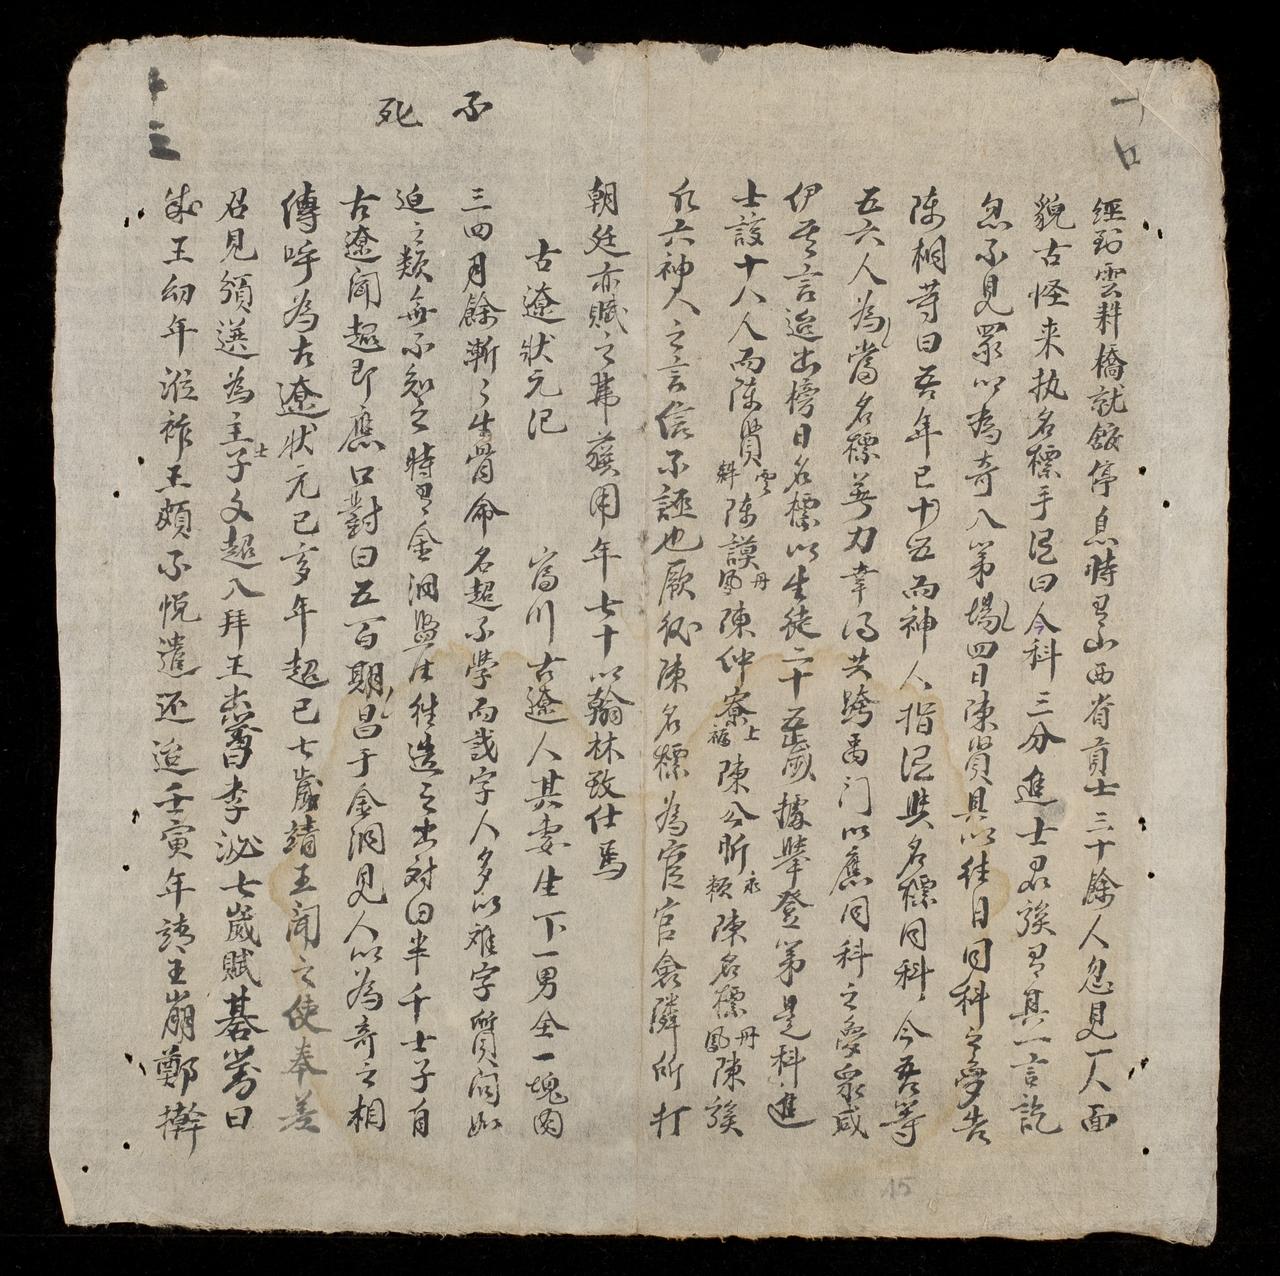 不死
經到雲耕橋就館停息時有山西省貢士三十餘人忽見一人面
貌古怪来执名標手谓曰今科三分進士君族有其一言訖
忽不見眾以為奇入第四場日陳賢具以往日同科之夢告
陳相等曰吾年已五十而神人指谓與名標同科今吾等
五六人為當名標努力幸得共跨禹门以應同科之夢眾咸
伊其言迨出榜日名標以生徒二十五歲據举登第是科進
士該十八人而陳賢雲 陳謨丹鳳陳仲寮上福陳公昕永賴陳名標丹鳳陳族
六神人之言信不誣也厥後陳名標為官官舍隣所打
朝廷亦賦之弗獲用年七十以翰林致仕焉
古遼狀元记
富川古遼人其妻生下一男全一塊圆
三四月餘漸之生骨命名超不學而識字人多以难字質问如
迫之類無不知之時有金洞監生往造之出对曰半千士子自
古遼聞超即應口對曰五百期昌于金洞見人以為奇之相
傳呼為古遼狀元已亥年超已七歲靖王聞之使奉差
召見頒送為王子士文超入拜王嘗曰李泌七歲賦碁嘗曰
成王幼年涖祚王頗不悅遣还迨壬寅年靖王崩鄭檊
十三
15